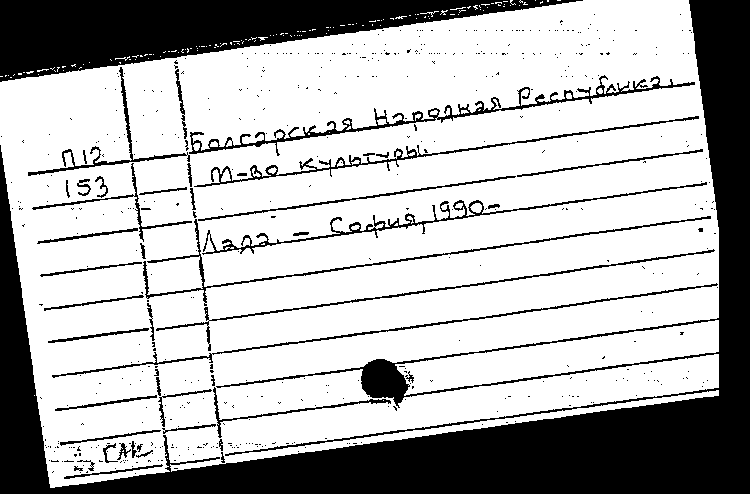 Болгарская Народная Республика.
П12
М-во культуры.
153
Лада. – София, 1990–